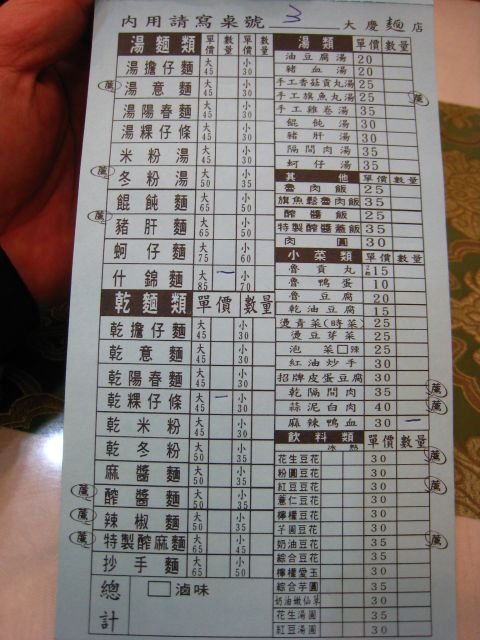 內用請寫桌號 3 大慶麵店
湯麵類 單價 數量 單價 數量
湯擔仔麵 大45 小30
薦 湯意麵 大45 小30
湯陽春麵 大45 小30
湯粿仔條 大45 小30
米粉湯 大45 小30
薦 冬粉湯 大50 小35
薦 餛飩麵 大65 小50
豬肝麵 大75 小60
蚵仔麵 大75 小60
什錦麵 大85 一 小70
乾麵類 單價 數量
乾擔仔麵 大45 小30
乾意麵 大45 小30
乾陽春麵 大45 小30
乾粿仔條 大45 一 小30
乾米粉 大45 小30
乾冬粉 大50 小35
麻醬麵 大50 小35
薦 醡醬麵 大50 小35
薦 辣椒麵 大50 小35
薦 特製醡麻麵 大65 小45
抄手麵 大65 小50
總計 □滷味
湯類 單價 數量
油豆腐湯 20
豬血湯 20
手工香菇貢丸湯 25
手工旗魚丸湯 25 薦
手工雞卷湯 35
餛飩湯 30
豬肝湯 30
隔間肉湯 35
蚵仔湯 35
其他 單價 數量
魯肉飯 25
旗魚鬆魯肉飯 35
醡醬飯 25
特製醡醬蓋飯 35
肉圓 30
小菜類 單價 數量
魯貢丸 2粒15
魯鴨蛋 10
魯豆腐 20
乾油豆腐 15
燙青菜(時菜) 25
燙豆芽菜 25
泡菜□辣 25
紅油炒手 30
招牌皮蛋豆腐 30
乾隔間肉 35 薦
蒜泥白肉 40 薦
麻辣鴨血 30 一
飲料類 冰 熱 單價 數量
花生豆花 30 薦
粉圓豆花 30
紅豆豆花 30 薦
薏仁豆花 30
檸檬豆花 30
芋圓豆花 30
奶油豆花 35 薦
綜合豆花 35
檸檬愛玉 30
綜合芋圓 35
奶油嫩仙草 35
花生湯圓 35
紅豆湯圓 30